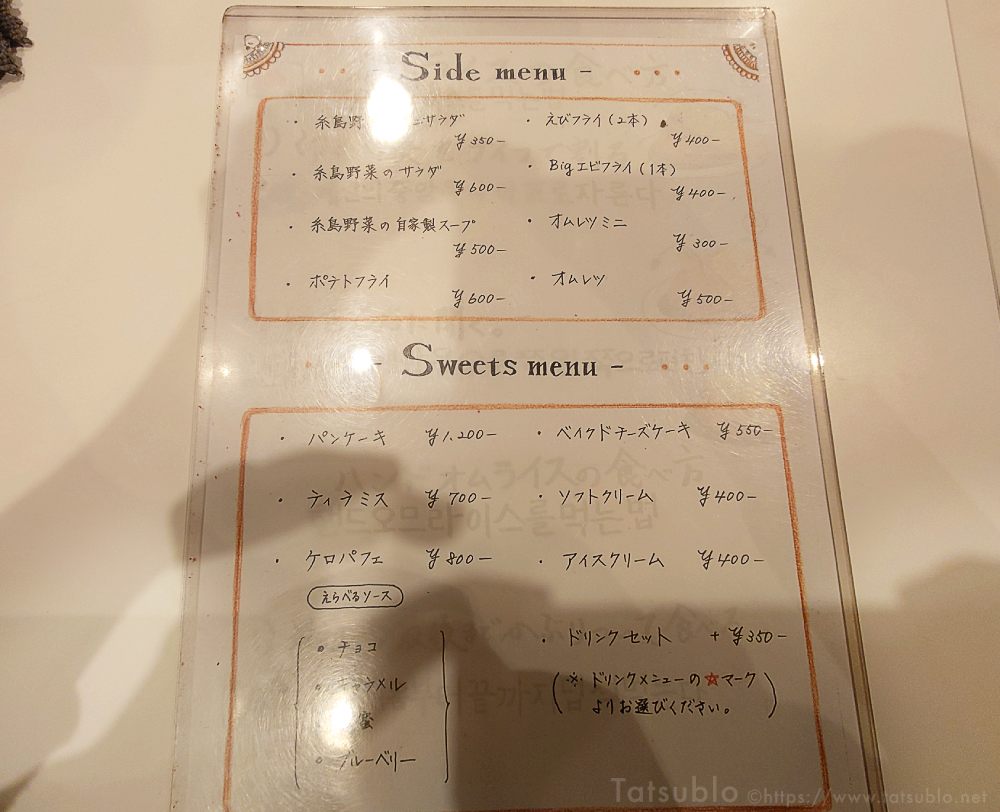 - Side menu -
・糸島野 ニサラダ
¥350-
・糸島野菜のサラダ
¥600-
・糸島野菜の自家製スープ
¥500-
・ポテトフライ
¥600-
・えびフライ(2本)
¥400-
・Bigエビフライ(1本)
¥400-
・オムレツミニ
¥300-
・オムレツ
¥500-
- Sweets menu -
・パンケーキ ¥1,200-
・ティラミス ¥700-
・ケロパフェ ¥800-
えらべるソース
○チョコ
ャラメル
蜜
○ブルーベリー
・ベイクドチーズケーキ ¥550-
・ソフトクリーム ¥400-
・アイスクリーム ¥400-
・ドリンクセット +¥350-
(※ドリンクメニューの★マーク
よりお選びください。)
ハンドオムライスの食べ方
핸드오므라이스를 먹는 법
Tatsublo ©https://www.tatsublo.net